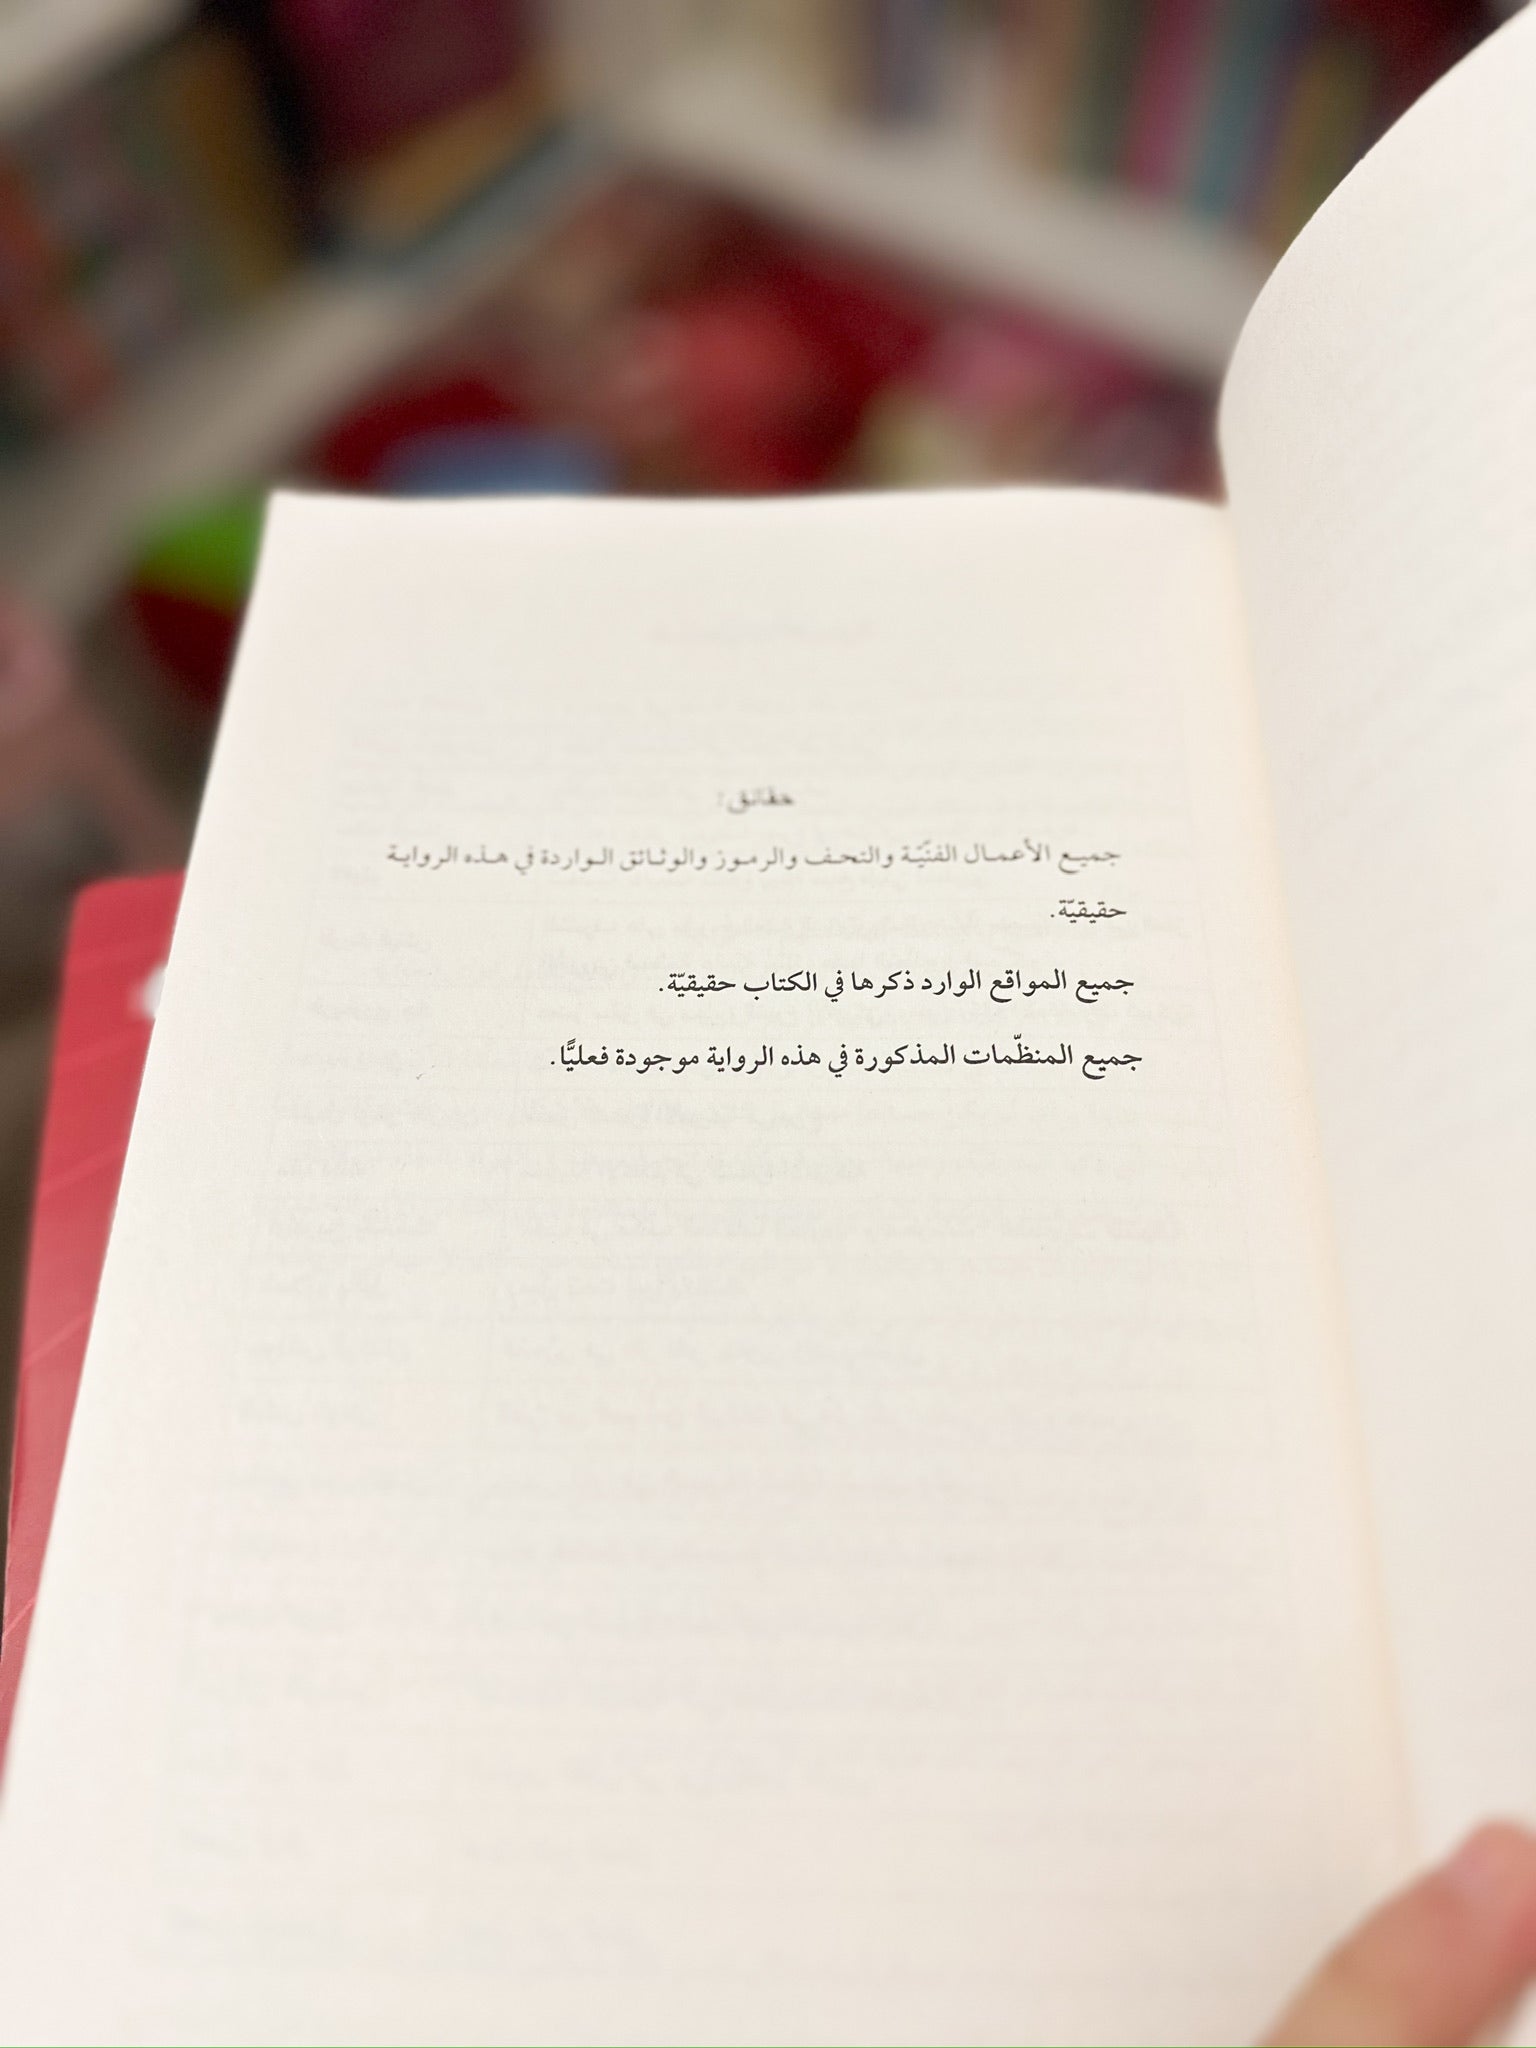 حقائق:
جميع الأعمال الفنّيّة والتحف والرموز والوثائق الواردة في هذه الرواية
حقيقيّة.
جميع المواقع الوارد ذكرها في الكتاب حقيقيّة.
جميع المنظّمات المذكورة في هذه الرواية موجودة فعليًّا.